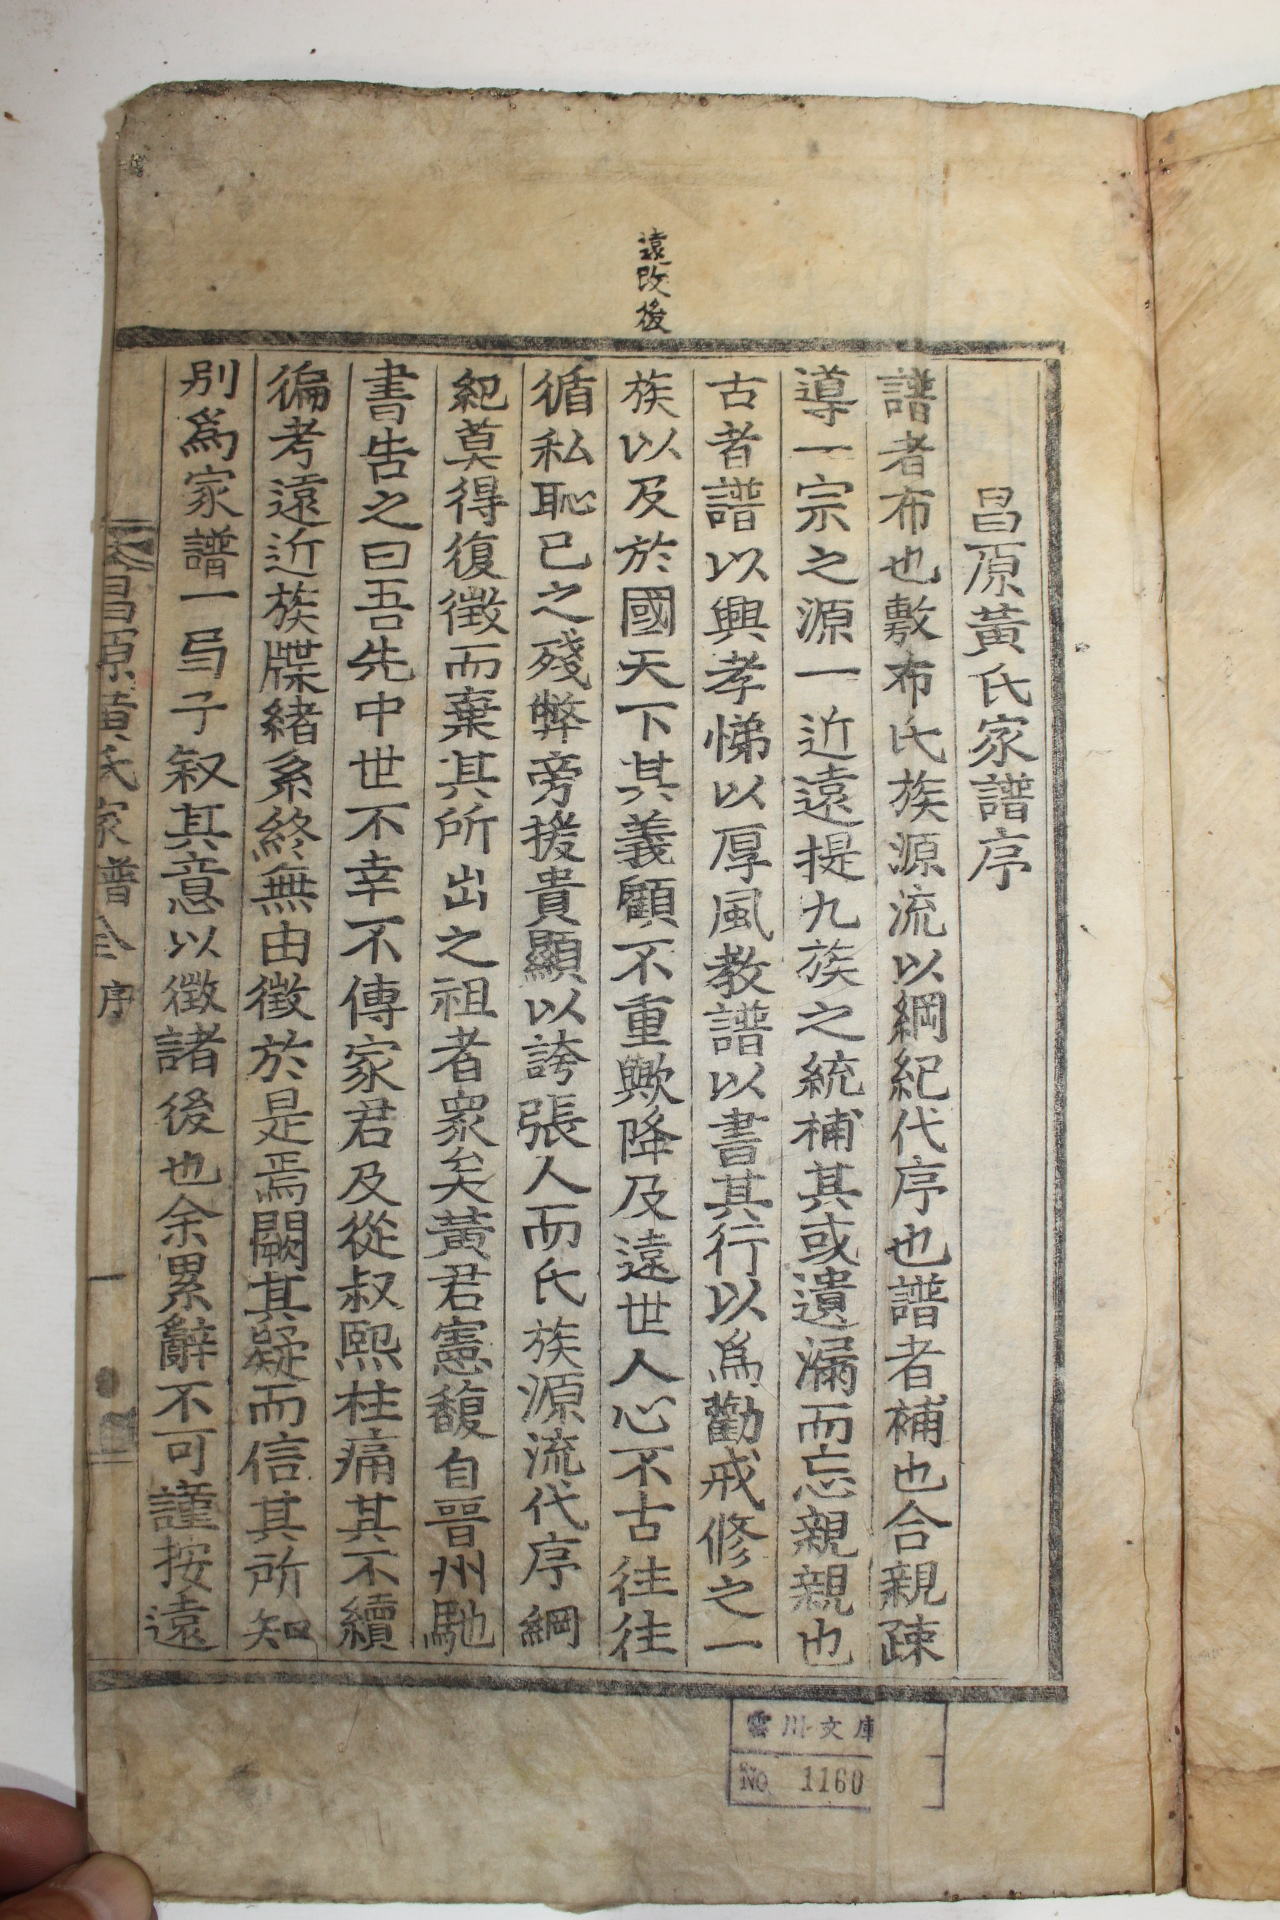 昌原黃氏家譜序
譜者布也敷布氏族源流以綱紀代序也譜者補也合親疎
導一宗之源一近遠提九族之統補其或遺漏而忘親親也
古者譜以興孝悌以厚風教譜以書其行以爲勸戒修之一
遠改後
族以及於國天下其義顧不重歟降及遠世人心不古往往
循私恥已之殘弊旁援貴顯以誇張人而氏族源流代序綱
紀莫得復徵而棄其所出之祖者衆矣黃君憲馥自晉州馳
書告之曰吾先中世不幸不傳家君及從叔熙柱痛其不續
徧考遠近族牒緖系終無由徵於是焉闕其疑而信其所知
別爲家譜一弓子叙其意以徵諸後也余累辭不可謹按遠
昌原黃氏家譜全 序 一
雲川文庫
NO 1160